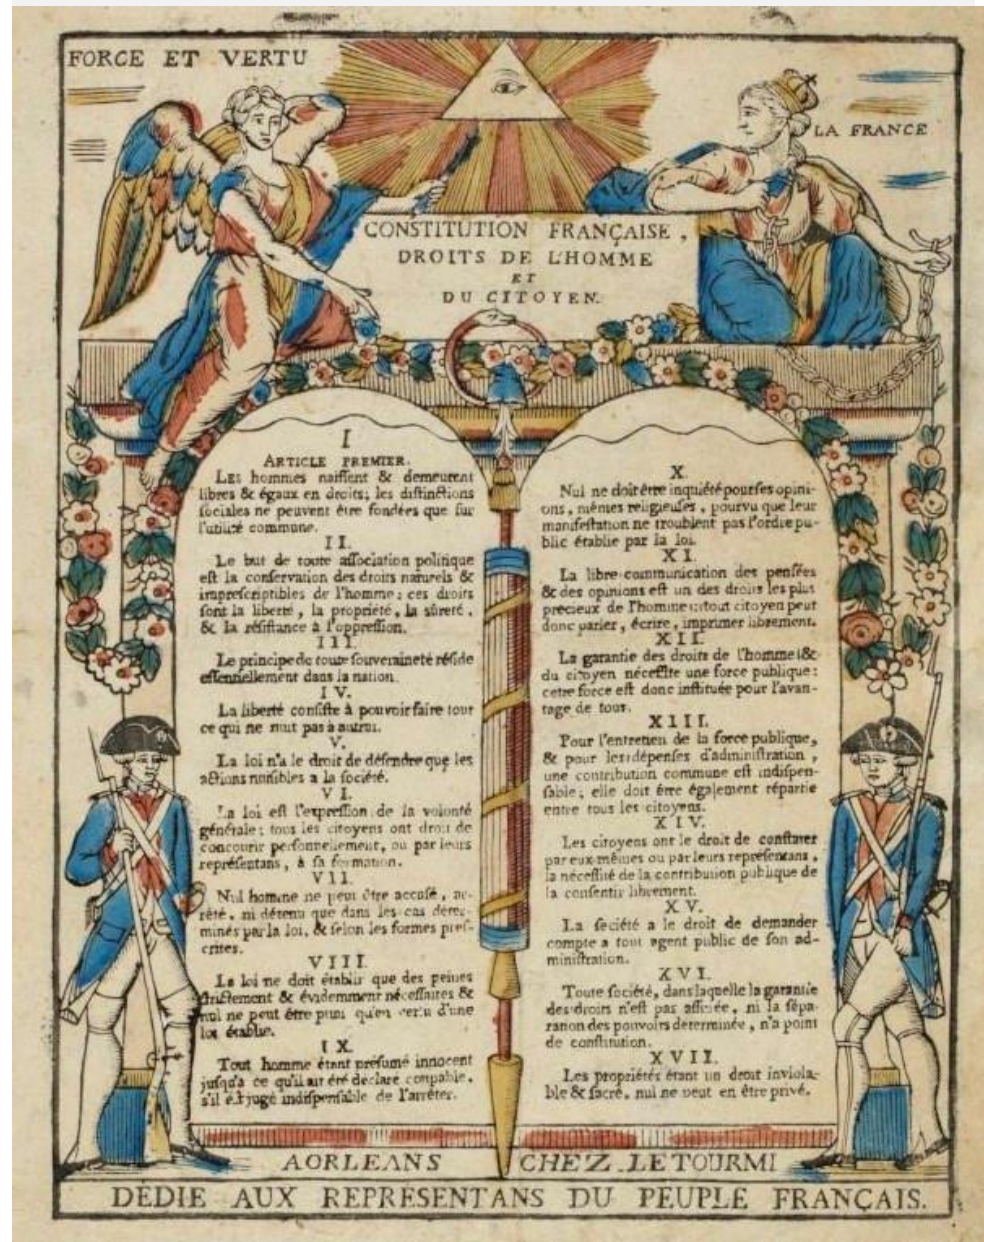 FORCE ET VERTU
LA FRANCE
CONSTITUTION FRANÇAISE,
DROITS DE L'HOMME
ET
DU CITOYEN.
I
ARTICLE PREMIER.
LES hommes naissent & demeurent
libres & égaux en droits; les distinctions
sociales ne peuvent être fondées que sur
l'utilité commune.
II.
Le but de toute association politique
est la conservation des droits naturels &
imprescriptibles de l'homme; ces droits
sont la liberté, la propriété, la sûreté,
& la résistance à l'oppression.
III.
Le principe de toute souveraineté réside
essentiellement dans la nation.
IV.
La liberté consiste à pouvoir faire tout
ce qui ne nuit pas à autrui.
V.
La loi n'a le droit de défendre que les
actions nuisibles a la société.
VI.
La loi est l'expression de la volonté
générale; tous les citoyens ont droit de
concourir personnellement, ou par leurs
représentans, à sa formation.
VII.
Nul homme ne peut être accusé, ar-
rêté, ni détenu que dans les cas déter-
minés par la loi, & selon les formes pres-
crites.
VIII.
La loi ne doit établir que des peines
strictement & évidemment nécessaires &
nul ne peut être puni qu'en vertu d'une
loi établie.
IX.
Tout homme étant présumé innocent
jusqu'a ce qu'il ait été déclaré coupable,
s'il est jugé indispensable de l'arrêter.
X.
Nul ne doit être inquiété pour ses opini-
ons, mêmes religieuses, pourvu que leur
manifestation ne troublent pas l'ordre pu-
blic établie par la loi.
XI.
La libre communication des pensées
& des opinions est un des droits les plus
précieux de l'homme: tout citoyen peut
donc parler, écrire, imprimer librement.
XII.
La garantie des droits de l'homme &
du citoyen nécessite une force publique:
cette force est donc instituée pour l'avan-
tage de tous.
XIII.
Pour l'entretien de la force publique,
& pour les dépenses d'administration,
une contribution commune est indispen-
sable; elle doit être également répartie
entre tous les citoyens.
XIV.
Les citoyens ont le droit de constater
par eux-mêmes ou par leurs représentans,
la nécessité de la contribution publique de
la consentir librement.
XV.
La société a le droit de demander
compte a tout agent public de son ad-
ministration.
XVI.
Toute société, dans laquelle la garantie
des droits n'est pas assurée, ni la sépa-
ration des pouvoirs déterminée, n'a point
de constitution.
XVII.
Les propriétés étant un droit inviola-
ble & sacré, nul ne peut en être privé.
A ORLEANS CHEZ LETOURMI
DÉDIÉ AUX REPRÉSENTANS DU PEUPLE FRANÇAIS.